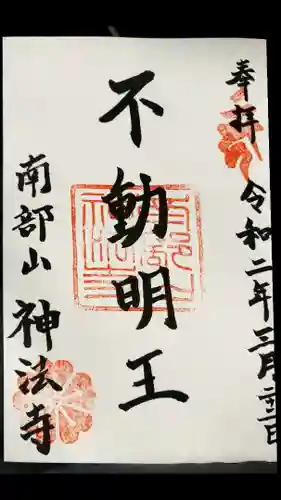 奉拝
令和二年三月二十二日
不動明王
南部山
神法寺